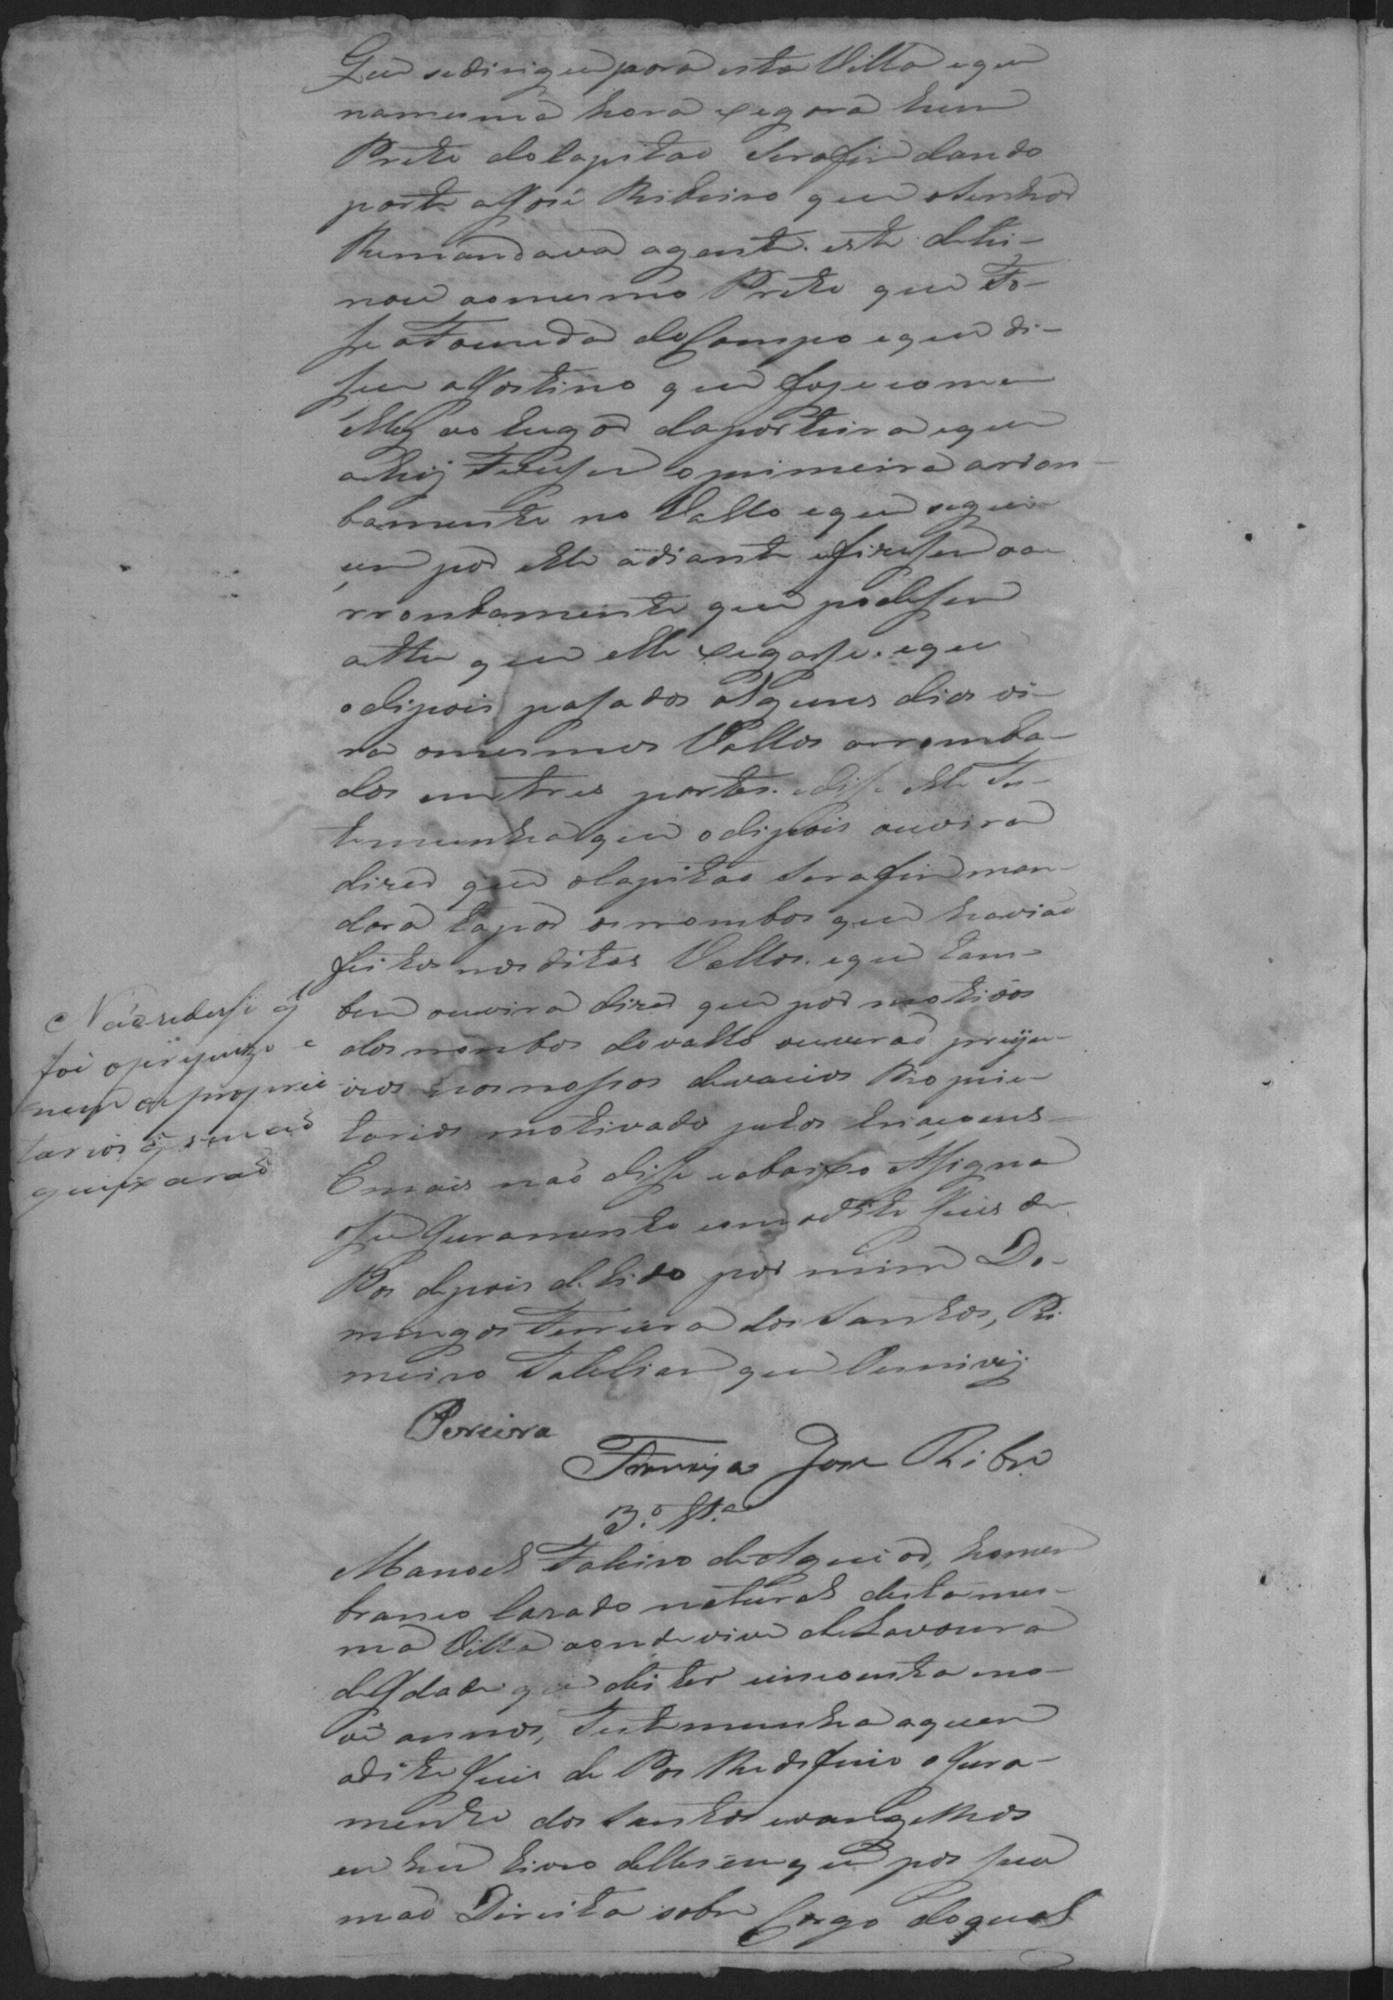 Que sedirigeu para esta Villa eque
namesma hora xegara hum
Preto do Capitao Serafin dando
parte a José Ribeiro que o Senhor
Remandava agente. este detri-
nou ao mesmo Preto que Fo-
se a Fazenda do Campo eque di-
seu a Jostino que foje com
elles ao lugar da porteira eque
ahij Fisesen o primeiro arron-
bamento no Vallo eque segui-
sen por elle adiante efizesen o a
rronbamento que podesen
athe que elle xegasse. eque
odipois pasados alguns dias vi-
ra omesmos Vallos arromba-
dos em tres partes. edise elle Tes-
temunha que odipois ouvira
dizer que o Capitao Serafin man-
dara tapar os rombos que haviao
feitos nos ditos Vallos. eque tam-
ben ouvira dizer que por motivos
dos rombos do vallo ouverao preju-
izos aos nossos de varios Proprie-
tarios motivado pelos
E mais não disse e abaixo Asigna
o seu Juramento com o dito Juis de
Pas depois de lido por mim Do-
mingos Ferreira dos Santos, Pri
meiro Tabeliao que Escrivij
Não sabe se q
foi o prejuizo e
nem os proprie
tarios q se
queixarão
Pereira
Francisco Jose Ribro
3.º Ta
Manoel Fabiao de Aguiar, homen
branco Cazado natural desta mes-
ma Villa aonde vive de Lavoura
de Ydade que dis ter sincoenta eno-
ve annos, Testemunha aquem
o dito Juis de Pas Redeferio o Jura-
mento dos Santos evangelhos
en hum Livro delles em que pos sua
mao Direita sobre Cargo do qual